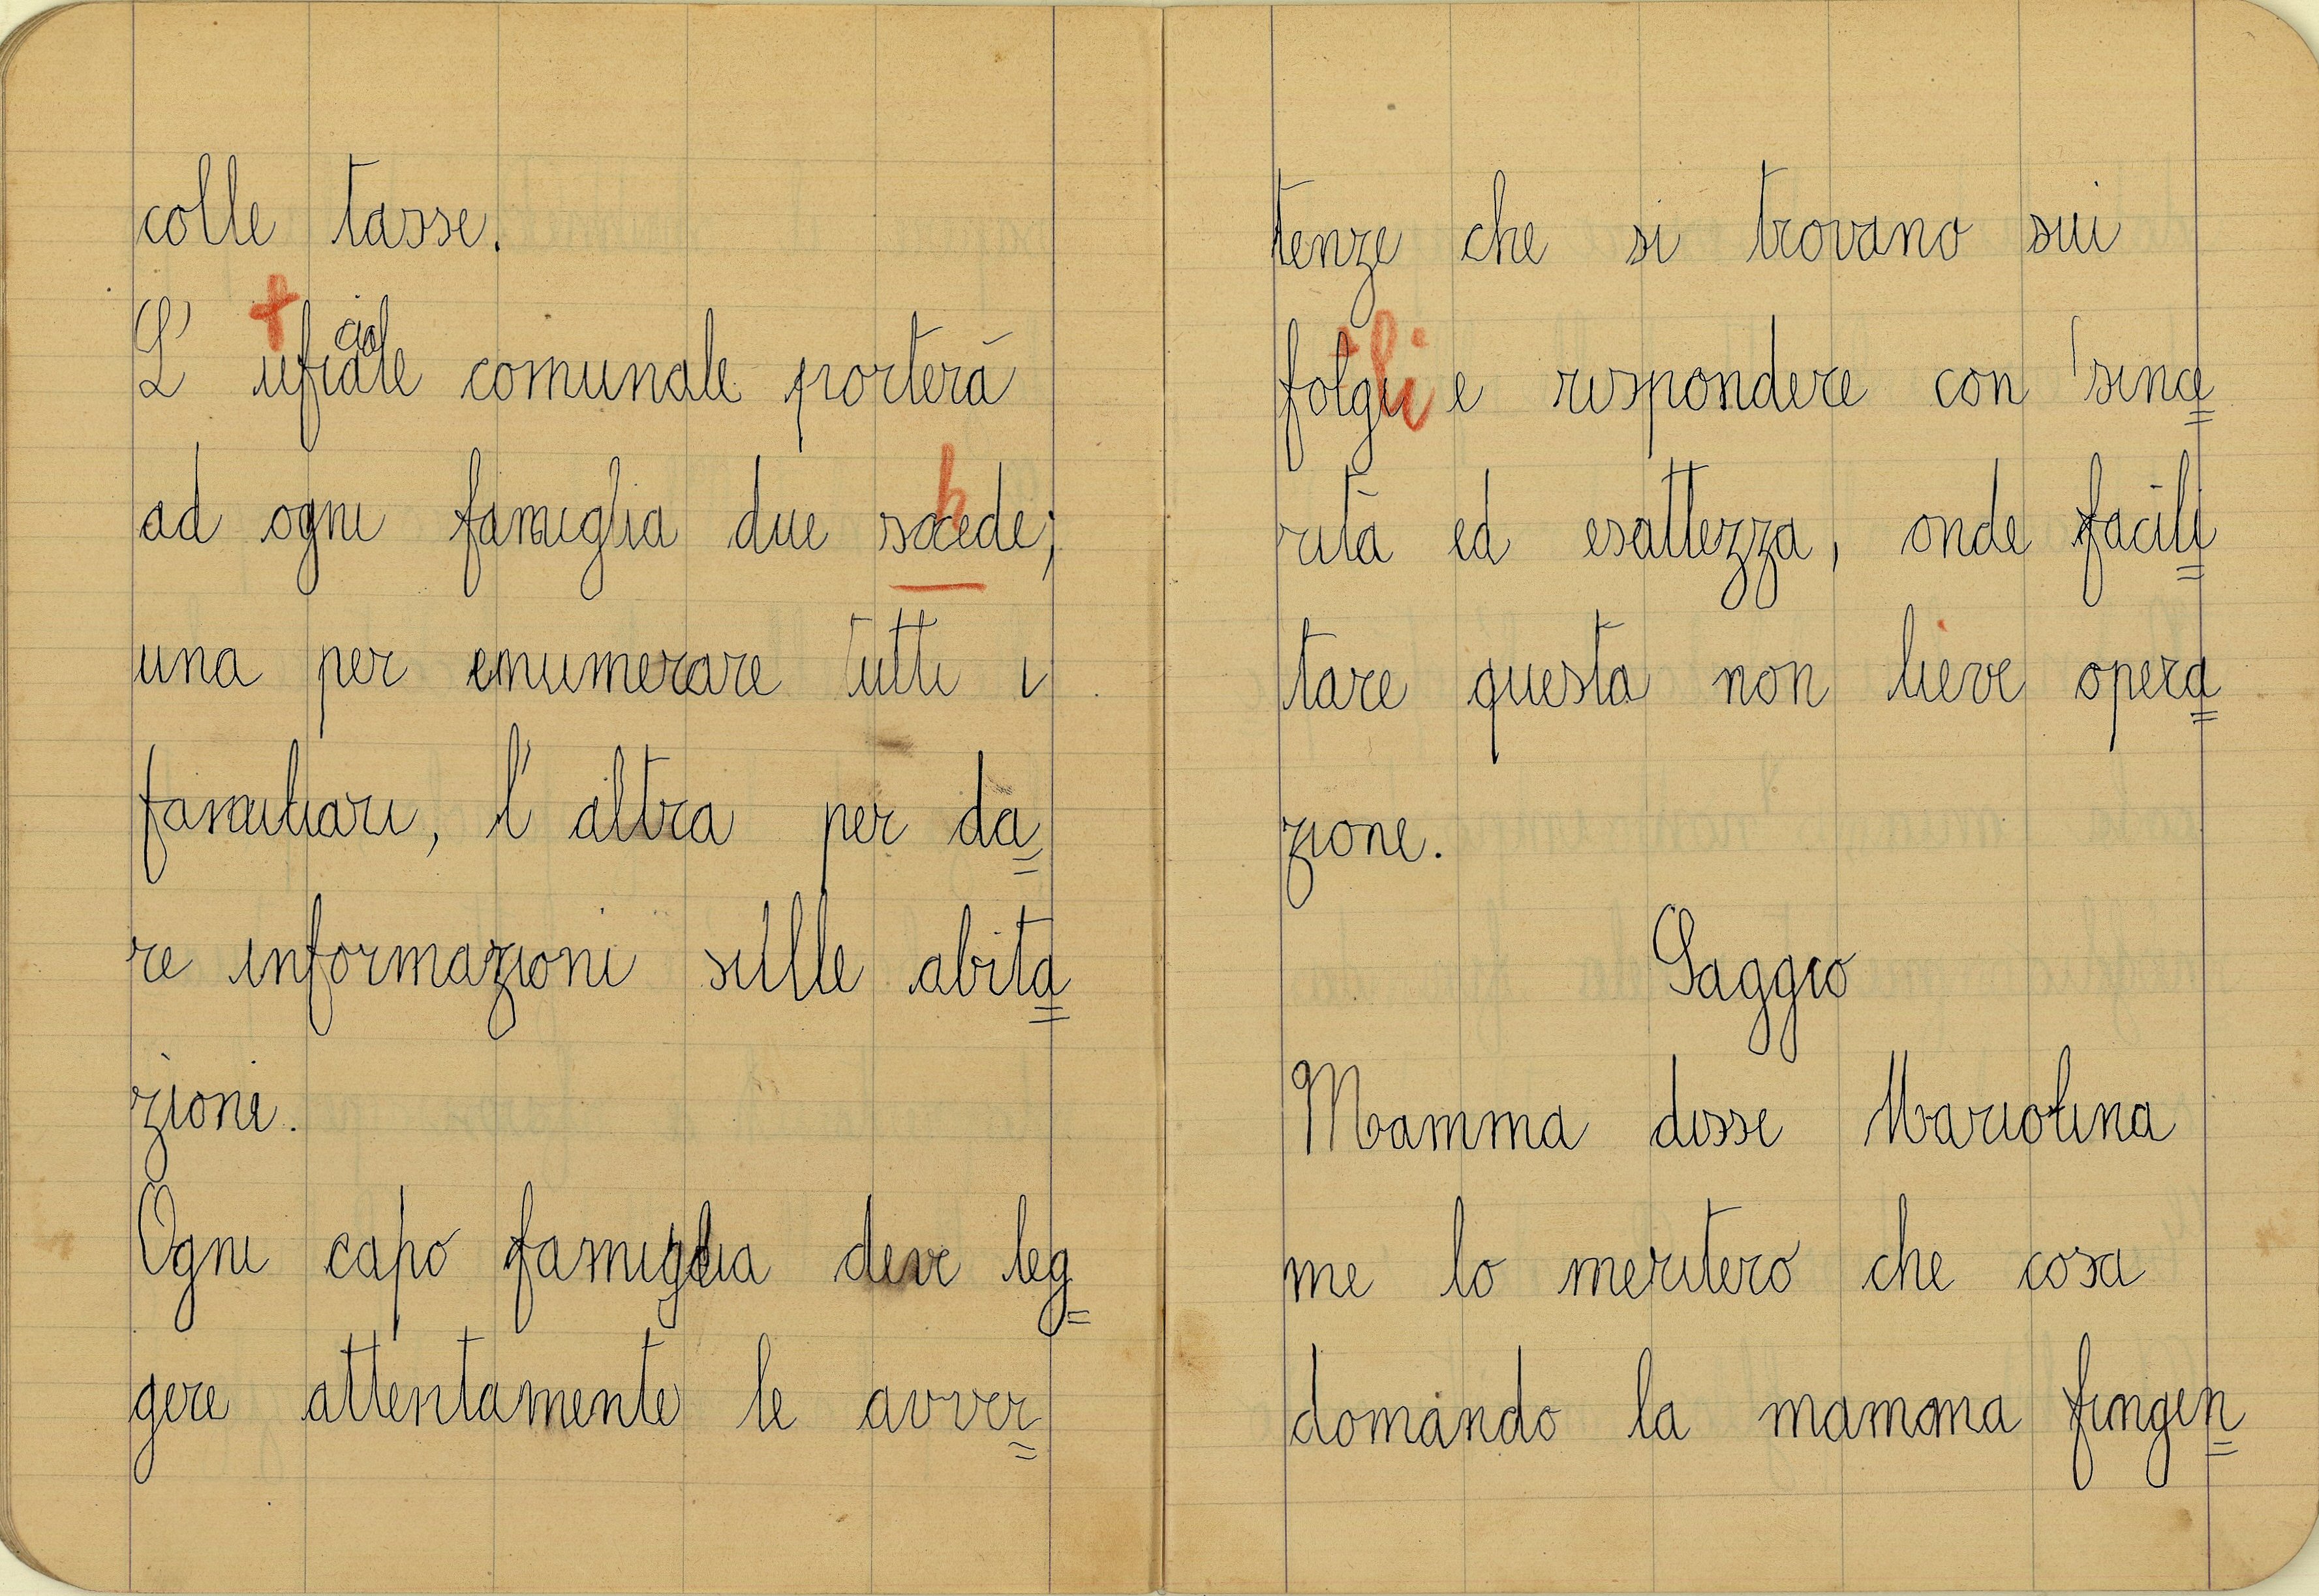 colle tasse.
L' ufficiale comunale porterà
ad ogni famiglia due schede;
una per enumerare tutti i
familiari, l' altra per da=
re informazioni sulle abita=
zioni.
Ogni capo famiglia deve leg=
gere attentamente le avver=
tenze che si trovano sui
fogli e rispondere con since=
rità ed esattezza, onde facili=
tare questa non lieve opera=
zione.
Saggio
Mamma disse Mariolina
me lo meritero che cosa
domando la mamma fingen=